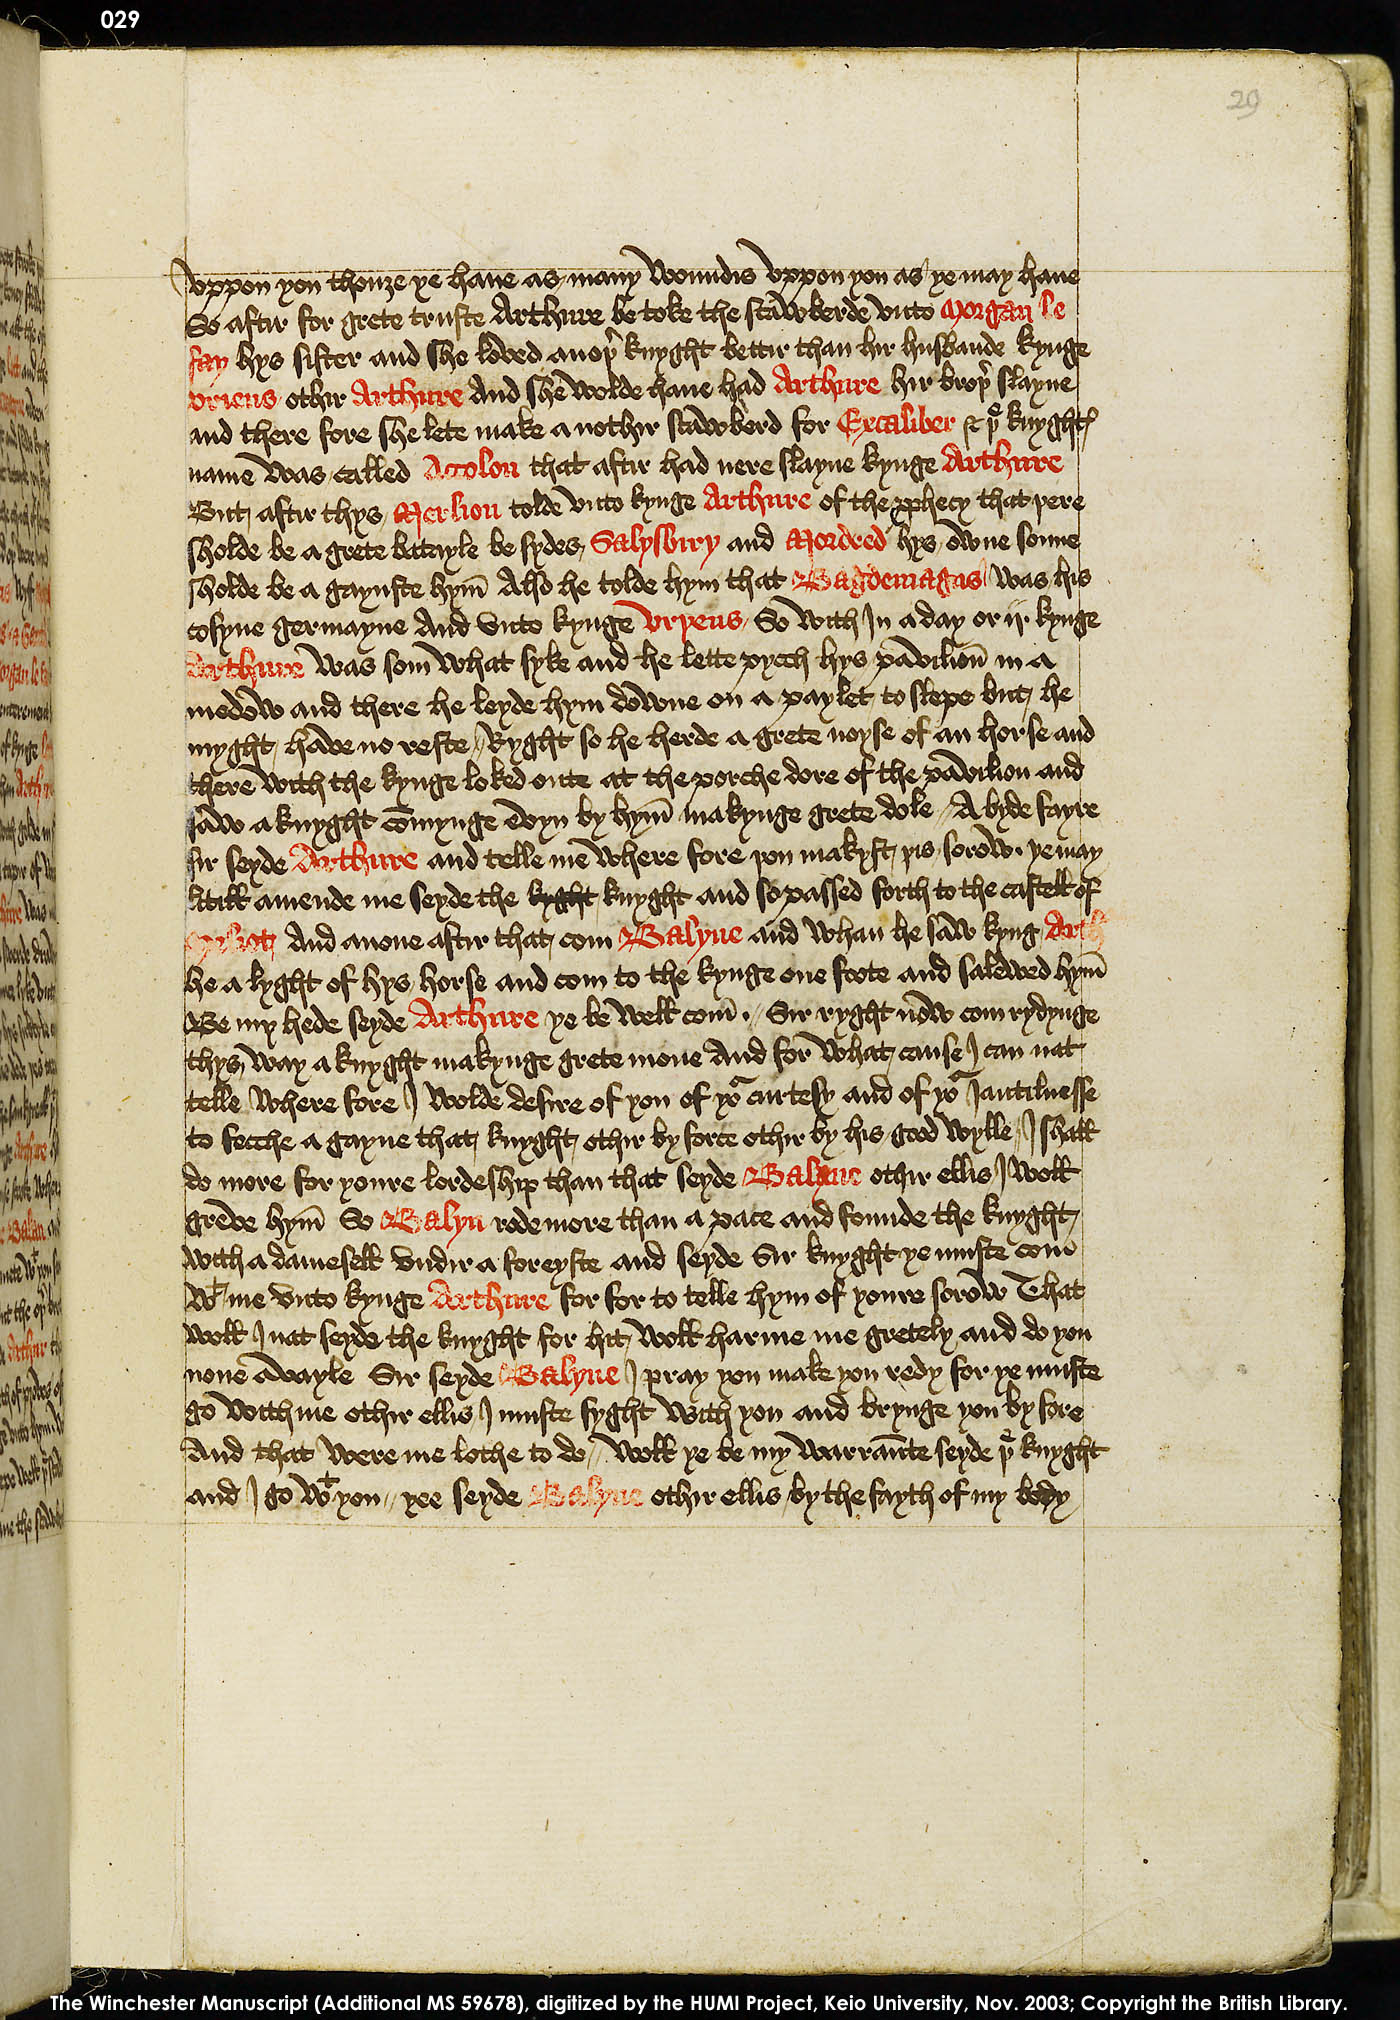 029
29
vppon you thouȝe ye haue as many woundis vppon you as ye may haue
So aftir for grete truste Arthure be toke the scawberde vnto Morgan le
fay hys sister and she loved anoþ̉ knyght bettir than hir husbande kynge
vriens othir Arthure And she wolde haue had Arthure hir broþ̉ slayne
and there fore she lete make a nothir scawberd for Excaliber & þe knyghtꝭ
name was called Accolon that aftir had nere slayne kynge Arthure
But aftir thys Merlion tolde vnto kynge Arthure of the ꝓphecy that þere
sholde be a grete batayle be sydes Salysbiry and Mordred hys owne sonne
sholde be a gaynste hym̄ Also he tolde hym that Bagdemagus was his
cosyne germayne And vnto kynge Vryens So with In a day or ij kynge
Arthure was som what syke and he lette pycch hys pavilion̄ in a
medow and there he leyde hym downe on a paylet to slepe but he
myght have no reste // Ryght so he herde a grete noyse of an horse and
there with the kynge loked oute at the porche dore of the pavilion and
saw a knyght com̄ynge evyn by hym̄ makynge grete dole // A byde fayre
sir seyde Arthure and telle me where fore þou makyst þis sorow. ye may
litill amende me seyde the kyght knyght and so passed forth to the castell of
Meliot And anone aftir that com Balyne and whan he saw kyng Arth
he a lyght of hys horse and com to the kynge one foote and salewed hym̄
Be my hede seyde Arthure ye be well com̄. // Sir ryght now com rydynge
thys way a knyght makynge grete mone And for what cause I can nat
telle Where fore I wolde desire of you of yor curtesy and of yor Jantilnesse
to fecche a gayne that knyght othir by force othir by his good wylle / I shall
do more for youre lordeshyp than that seyde Balyne othir ellis I woll
greve hym̄ So Balyn rode more than a pace and founde the knyght
with a damesell vndir a foreyste and seyde Sir knyght ye muste com̄
wt me vnto kynge Arthure for for to telle hym of youre sorow That
woll I nat seyde the knyght for hit woll harme me gretely and do you
none avayle Sir seyde Balyne I pray you make you redy for ye muste
go with me othir ellis I muste fyght with you and brynge you by fore
And that were me lothe to do // Woll ye be my warraūte seyde þe knyght
and I go wt you // yee seyde Balyne othir ellis by the fayth of my body
The Winchester Manuscript (Additional MS 59678), digitized by the HUMI Project, Keio University, Nov. 2003; Copyright the British Library.